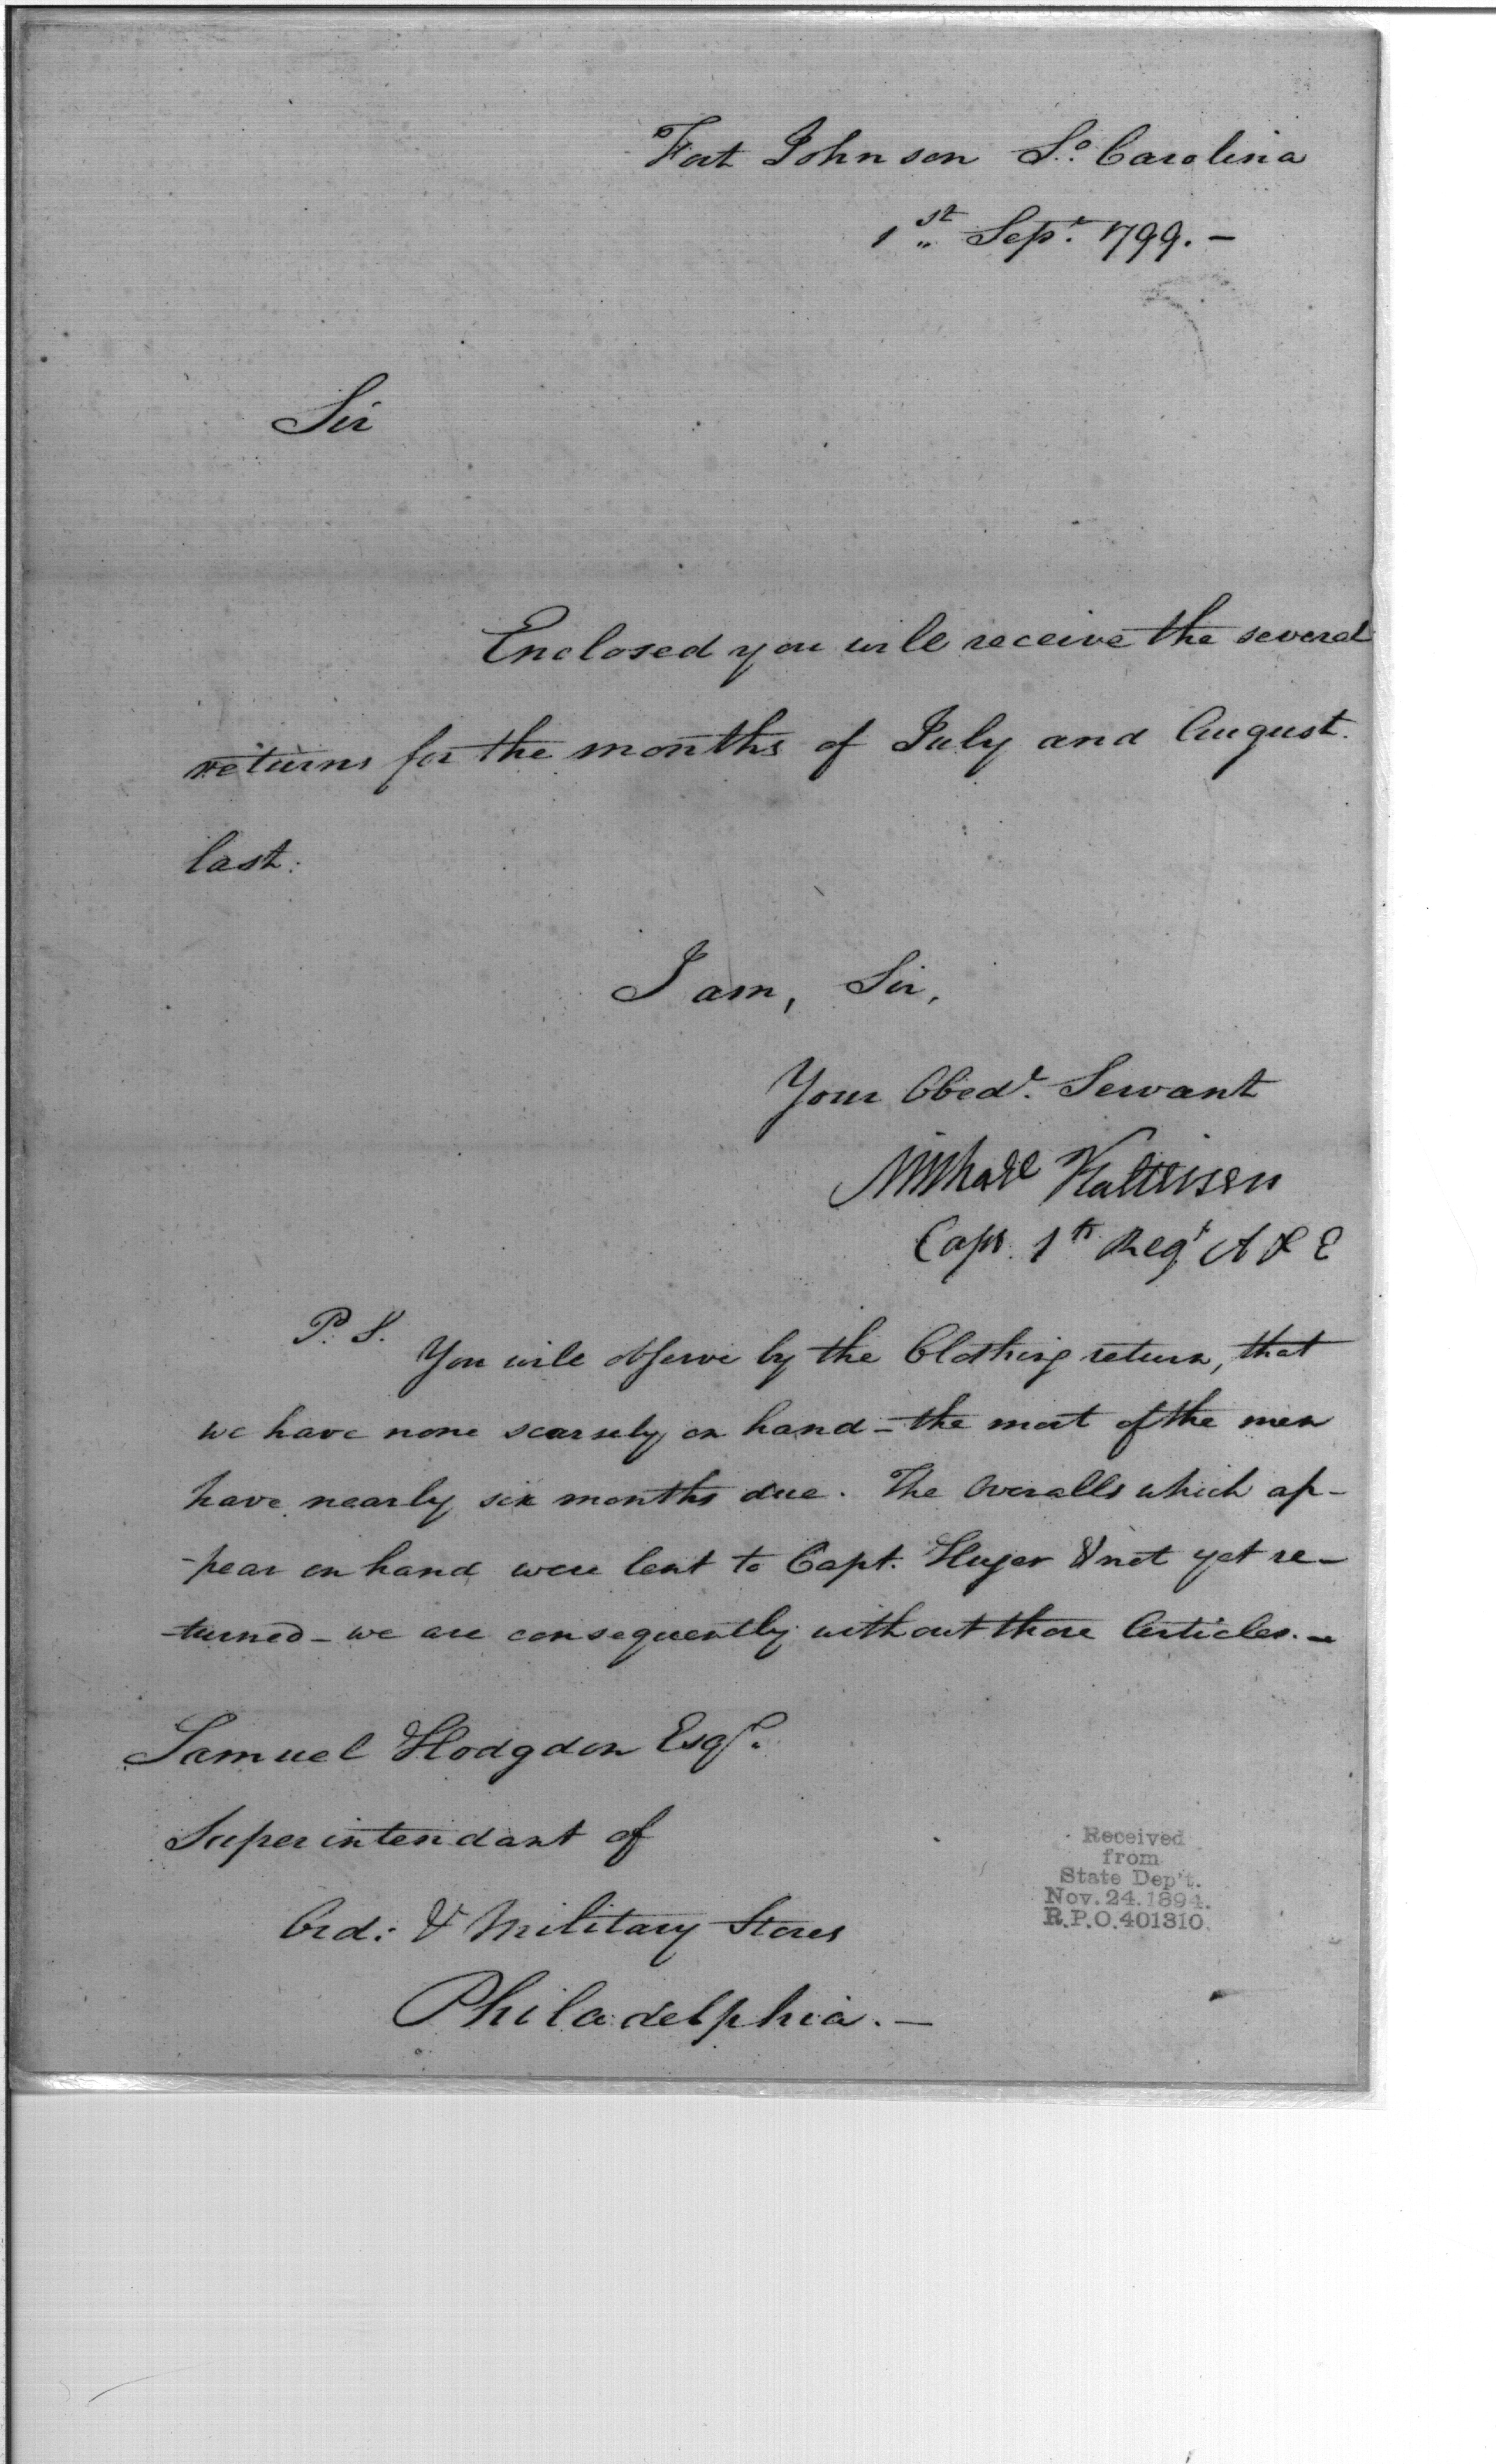 Fort Johnson So. Carolina
1st Sept. 1799. —
Sir
Enclosed you will receive the several
returns for the months of July and August.
last.
I am, Sir,
Your Obedt. Servant
Michael Kalteisen
Capt. 1st Regt A & E
P. S.
You will observe by the Clothing return, that
we have none scarsely on hand – the most of the men
have nearly six months due. The Overalls which ap-
-pear on hand were lent to Capt. Huger & not yet re-
-turned – we are consequently without those Articles. –
Samuel Hodgdon Esqr.
Superintendant of
Ord: & Military Stores
Philadelphia. —
Received
from
State Dep't.
Nov. 24. 1894.
R.P.O. 401310.